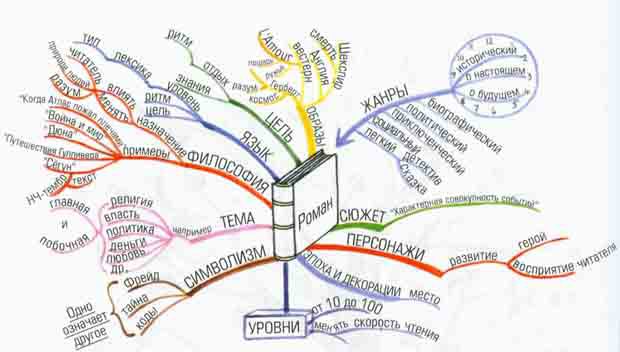 Роман
ЖАНРЫ
исторический
о настоящем
о будущем
12
биографический
политический
приключенческий
социальный
легкий
детектив
сказка
СЮЖЕТ
"Характерная совокупность событий"
ПЕРСОНАЖИ
развитие
герой
восприятие читателя
ЭПОХА И ДЕКОРАЦИИ
место
УРОВНИ
от 10 до 100
менять скорость чтения
СИМВОЛИЗМ
Фрейд
тайна
коды
Одно
означает
другое
ТЕМА
например
религия
власть
политика
деньги
любовь
др.
главная
и
побочная
ФИЛОСОФИЯ
назначение
влиять
менять
читатель
разум
примеры
"Когда Атлас пожал плечами"
"Война и мир"
"Дюна"
"Путешествия Гулливера"
"Сёгун"
текст
НЧ-тембр
ЯЗЫК
уровень
лексика
тип
ритм
цель
ЦЕЛЬ
знания
отдых
ритм
ОБРАЗЫ
Шекспир
смерть
Англия
вестерн
L'Amour
лошади
ружья
Герберт
разум
космос